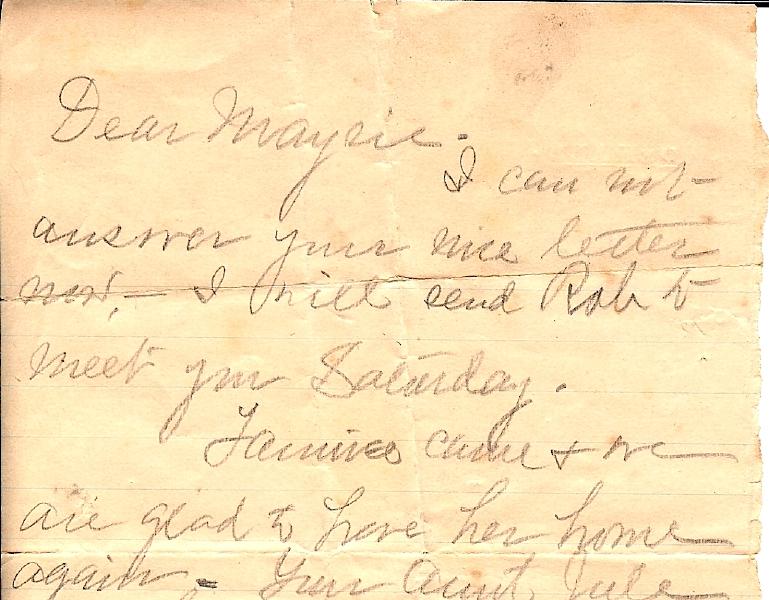 Dear Maysie.
I can not
answer your nice letter
now, - I will send Rob to
meet you Saturday.
came & we
are glad to have her home
again - Your Aunt